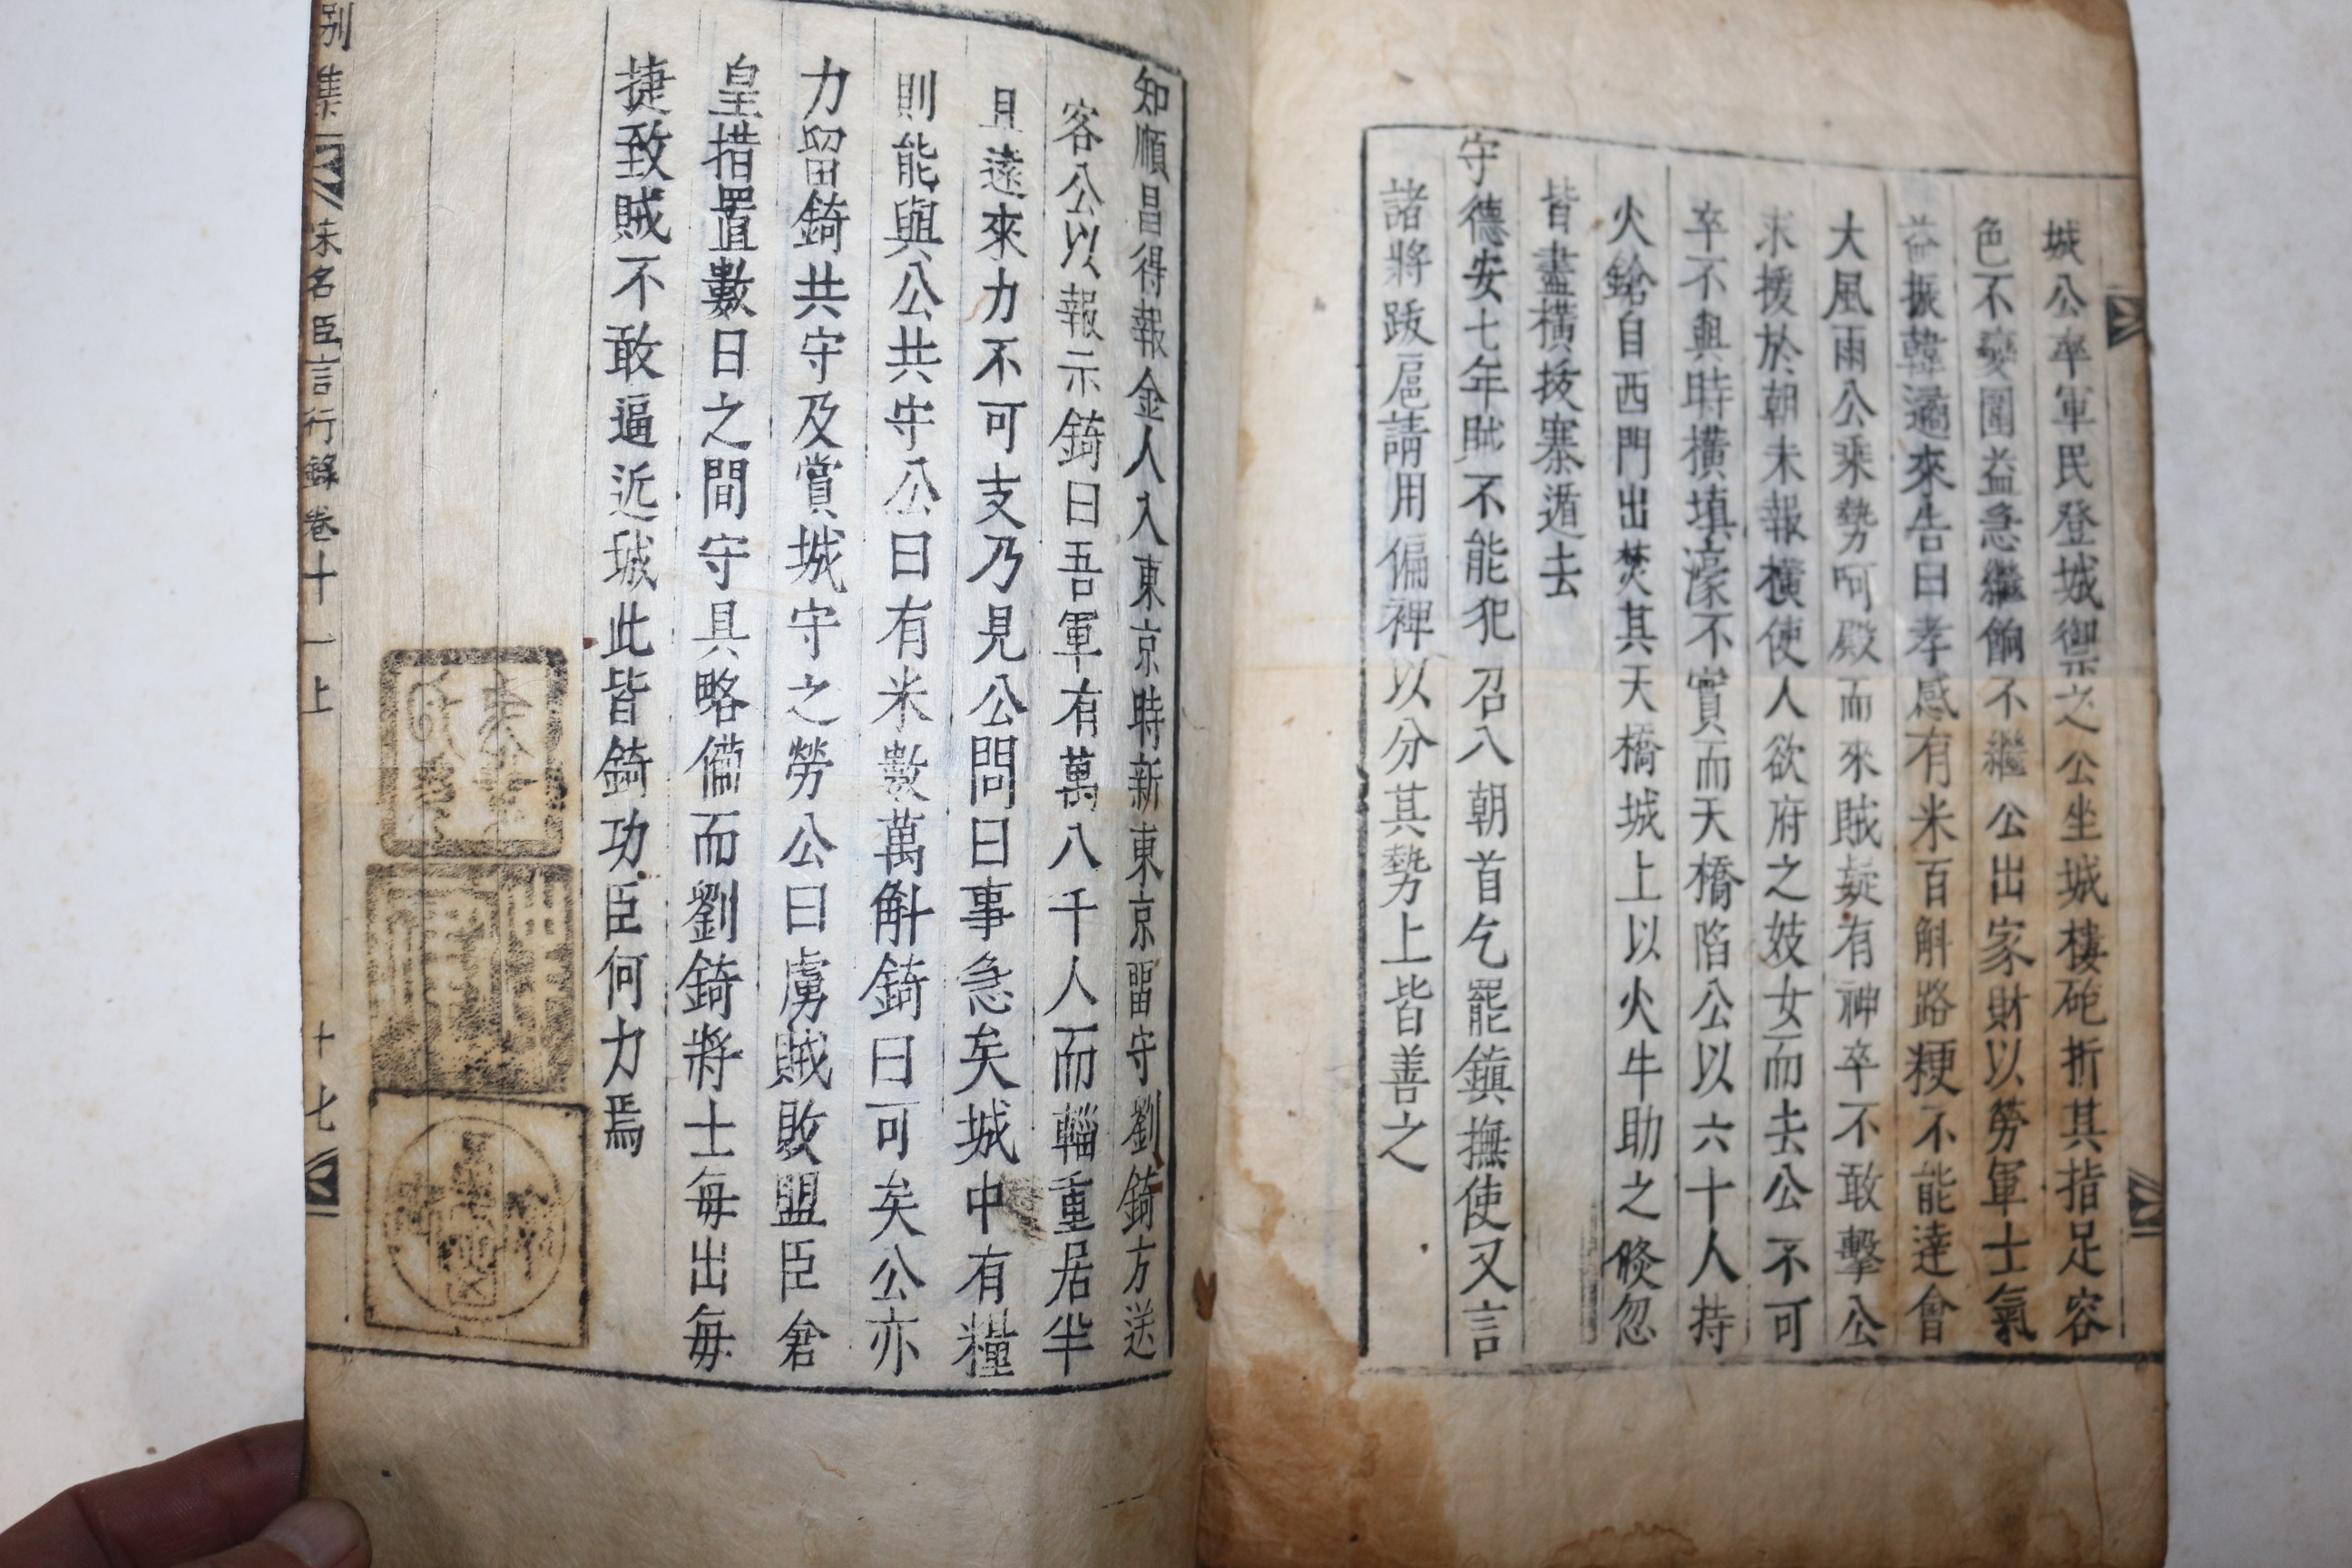 城公率軍民登城禦之公坐城樓砲折其指足容
色不變圍益急繼餉不繼公出家財以勞軍士氣
益振韓遹來告曰孝感有米百斛路梗不能達會
大風雨公乘勢呵殿而來賊疑有神卒不敢擊公
求援於朝未報橫使人欲府之妓女而去公不可
卒不與時橫填濠不實而天橋陷公以六十人持
火鎗自西門出焚其天橋城上以火牛助之倏忽
皆盡橫拔寨遁去
守德安七年賊不能犯召入朝首乞罷鎮撫使又言
諸將跋扈請用偏裨以分其勢上皆善之
知順昌得報金人入東京時新東京留守劉錡方送
客公以報示錡曰吾軍有萬八千人而輜重居半
且遠來力不可支乃見公問曰事急矣城中有糧
則能與公共守公曰有米數萬斛錡曰可矣公亦
力留錡共守及賞城守之勞公曰虜賊敗盟臣倉
皇措置數日之間守具略備而劉錡將士每出每
捷致賊不敢逼近城此皆錡功臣何力焉
別集 宋名臣言行錄卷十一上 十七